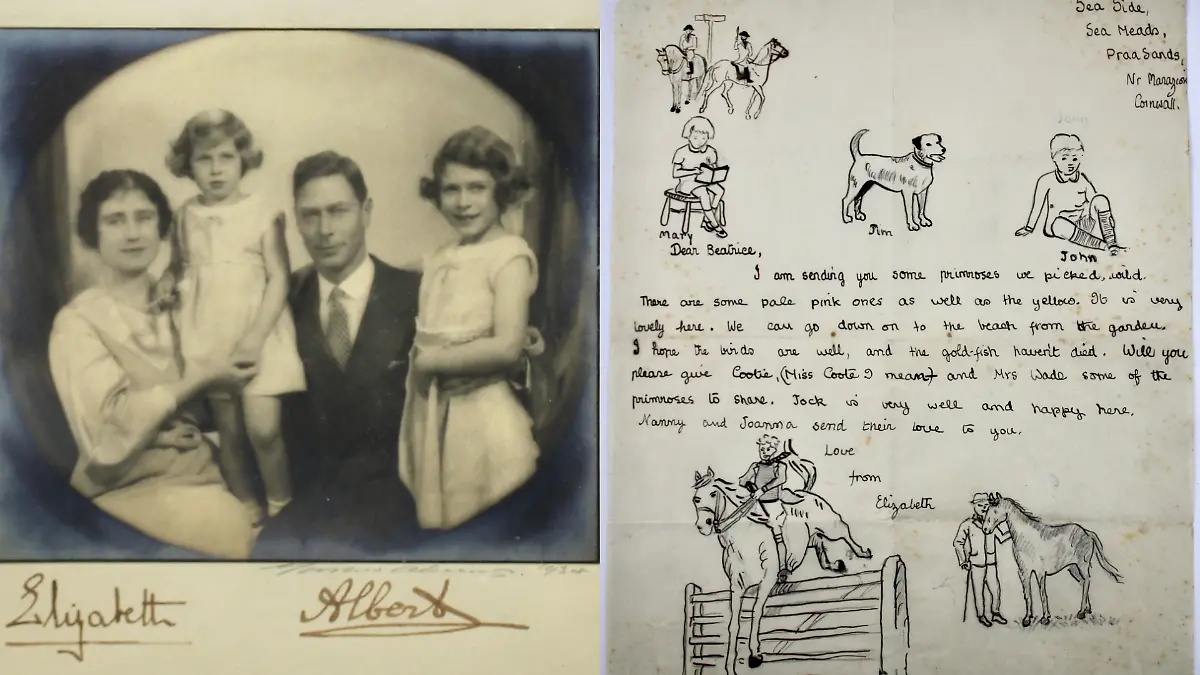 Elizabeth
Albert
Sea Side,
Sea Meads,
Praa Sands,
Nr Marazion
Cornwall.
John
Mary
Jim
John
Dear Beatrice,
I am sending you some primroses we picked, wild.
There are some pale pink ones as well as the yellow. It is very
lovely here. We can go down on to the beach from the garden.
I hope the birds are well, and the gold-fish haven't died. Will you
please give Cootie, (Miss Coote I mean) and Mrs Wade some of the
primroses to share. Jock is very well and happy here.
Nanny and Joanna send their love to you.
Love
from
Elizabeth